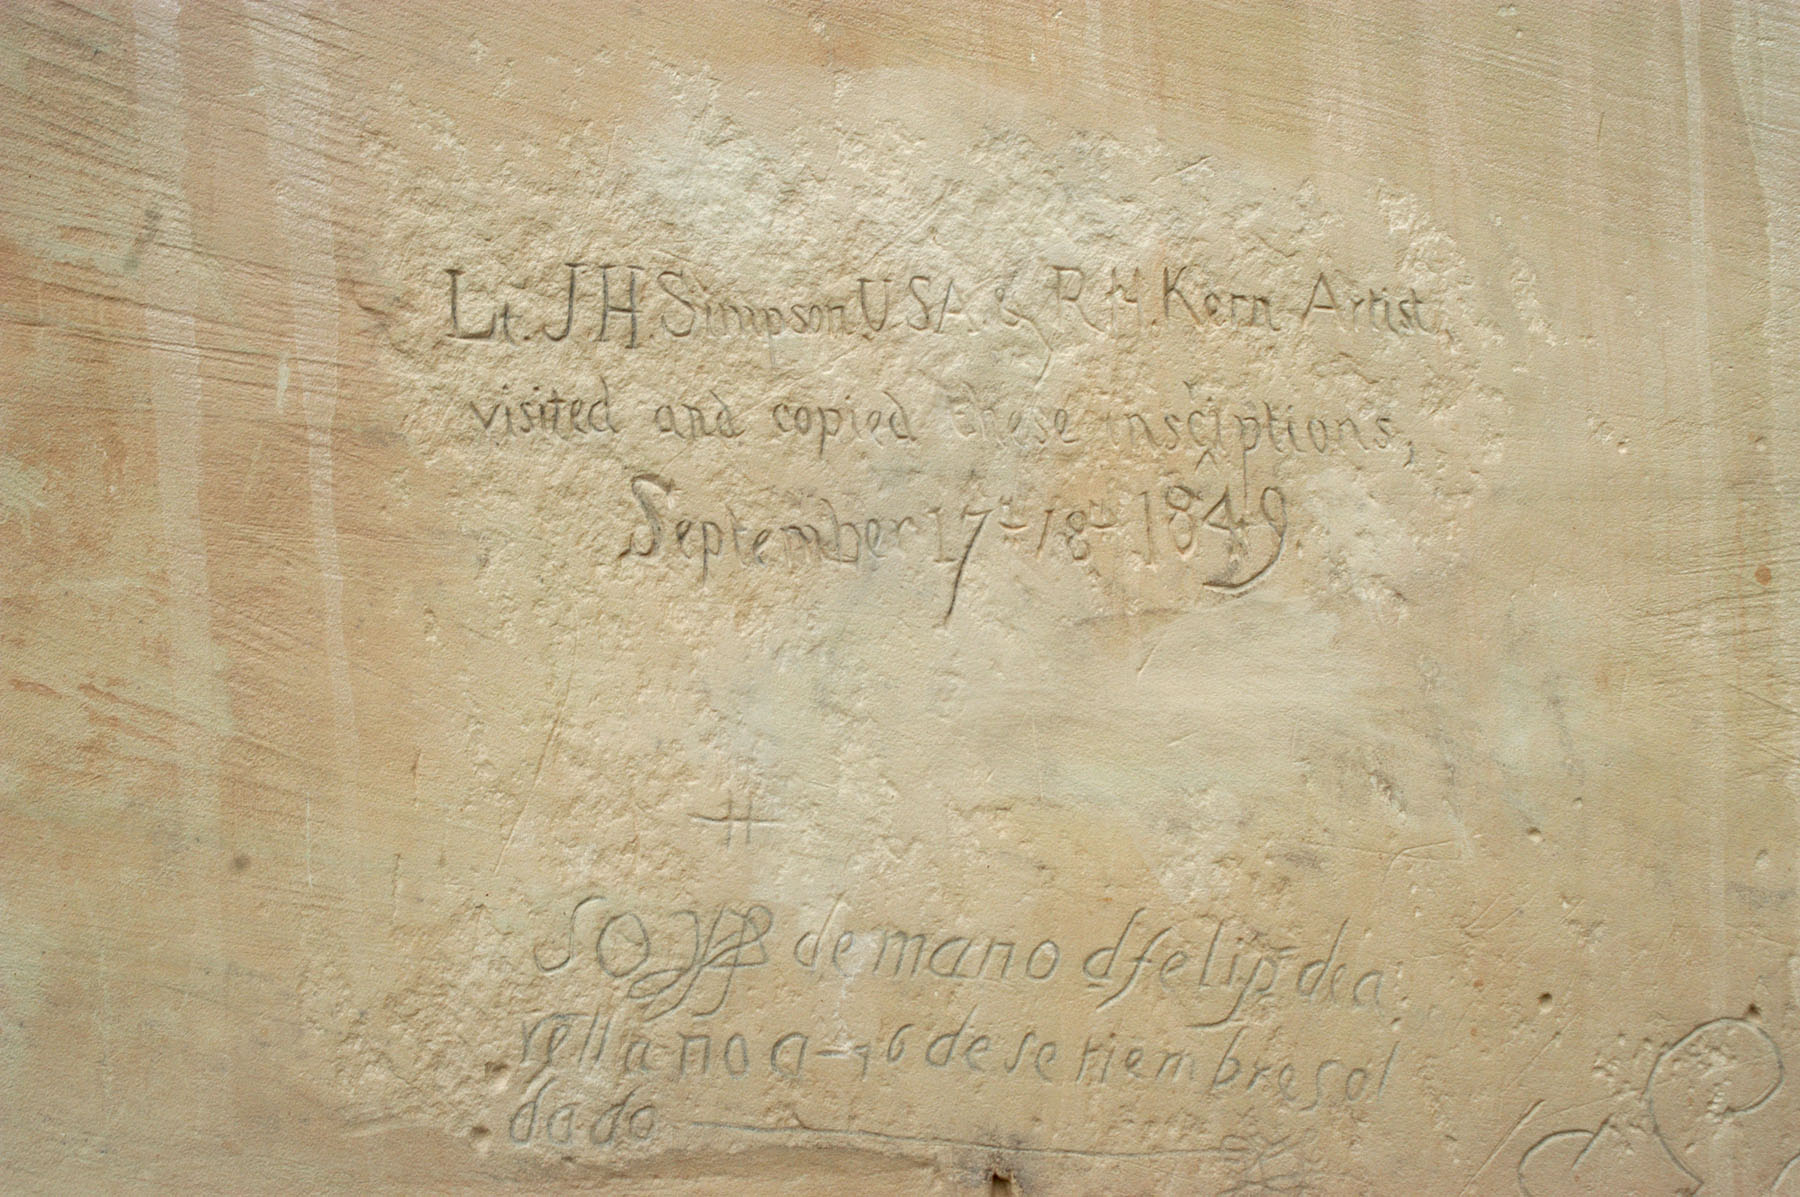 Lt. J.H. Simpson U.S.A. & R.H. Kern Artist,
visited and copied these insciptions,
September 17th 18th 1849.
SOY de mano d felipe de a
rellano a 16 de setiembre sol
dado